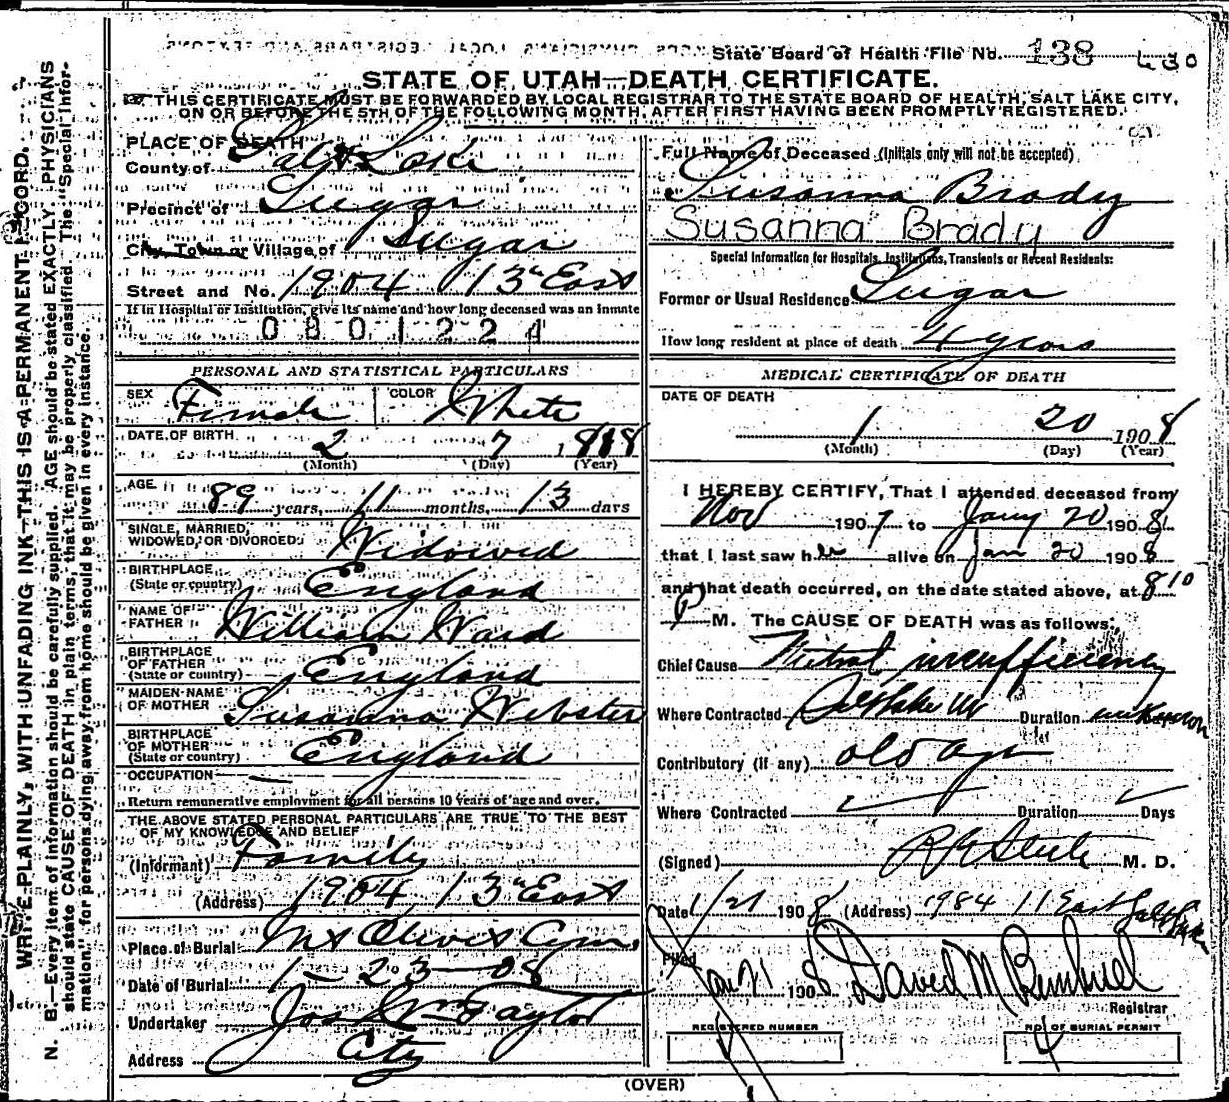 State Board of Health File No. 138
STATE OF UTAH—DEATH CERTIFICATE.
THIS CERTIFICATE MUST BE FORWARDED BY LOCAL REGISTRAR TO THE STATE BOARD OF HEALTH, SALT LAKE CITY,
ON OR BEFORE THE 5TH OF THE FOLLOWING MONTH, AFTER FIRST HAVING BEEN PROMPTLY REGISTERED.
WRITE PLAINLY, WITH UNFADING INK—THIS IS A PERMANENT RECORD.
N. B.—Every item of information should be carefully supplied. AGE should be stated EXACTLY. PHYSICIANS
should state CAUSE OF DEATH in plain terms, that it may be properly classified. The "Special Infor-
mation" for persons dying away from home should be given in every instance.
PLACE OF DEATH
County of Salt Lake
Precinct of Sugar
City, Town or Village of Sugar
Street and No. 1904 13" East
If in Hospital or Institution, give its name and how long deceased was an inmate
0801224
PERSONAL AND STATISTICAL PARTICULARS
SEX Female COLOR White
DATE OF BIRTH 2 7 1818
(Month) (Day) (Year)
AGE 89 years, 11 months, 13 days
SINGLE, MARRIED,
WIDOWED, OR DIVORCED: Widowed
BIRTHPLACE
(State or country) England
NAME OF
FATHER William Ward
BIRTHPLACE
OF FATHER
(State or country) England
MAIDEN NAME
OF MOTHER Susanna Webster
BIRTHPLACE
OF MOTHER
(State or country) England
OCCUPATION —
Return remunerative employment for all persons 10 years of age and over.
THE ABOVE STATED PERSONAL PARTICULARS ARE TRUE TO THE BEST
OF MY KNOWLEDGE AND BELIEF
(Informant) Family
(Address) 1904 13" East
Place of Burial Mt Olivet Cem.
Date of Burial 1–23–08
Undertaker Jos Wm Taylor
Address City
Full Name of Deceased (Initials only will not be accepted)
Susanna Brady
Susanna Brady
Special Information for Hospitals, Institutions, Transients or Recent Residents:
Former or Usual Residence Sugar
How long resident at place of death 4 years
MEDICAL CERTIFICATE OF DEATH
DATE OF DEATH
1 20 1908
(Month) (Day) (Year)
I HEREBY CERTIFY, That I attended deceased from
Nov 1907 to Jany 20 1908
that I last saw her alive on Jan 20 1908
and that death occurred, on the date stated above, at 8 10
P M. The CAUSE OF DEATH was as follows:
Chief Cause Mitral insufficiency
Where Contracted Salt Lake Duration unknown
Contributory (if any) old age
Where Contracted Duration Days
(Signed) M. D.
Date 1/21 1908 (Address) 1984 11 East Salt Lake
Filed Jan 21 1908 David M
Registrar
REGISTERED NUMBER
NO. OF BURIAL PERMIT
4
(OVER)